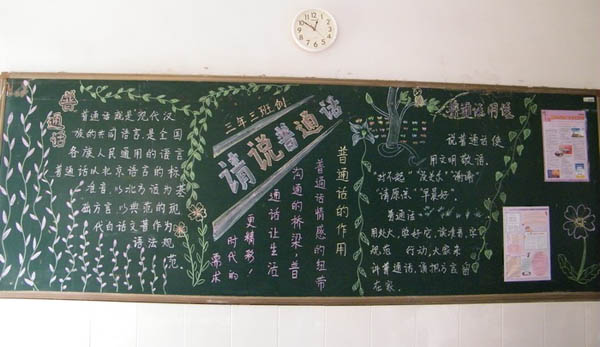 普通话
普通话就是现代汉
族的共同语言,是全国
各族人民通用的语言
普通话以北京语言的标
准音,以北方话为基
础方言,以典范的现
代白话文著作为
语法规
范
三年三班创
请说普通话
普通话的作用
普通话情感的纽带
沟通的桥梁,普
通话让生活
更精彩!
时代的
需求
普通话用语
说普通话使
用文明敬语。
"对不起""没关系""谢谢"
"请原谅""早晨好"。
普通话
用处大,学好它,读准音,
规范 行动,大家来
讲普通话,请把方言留
在家。